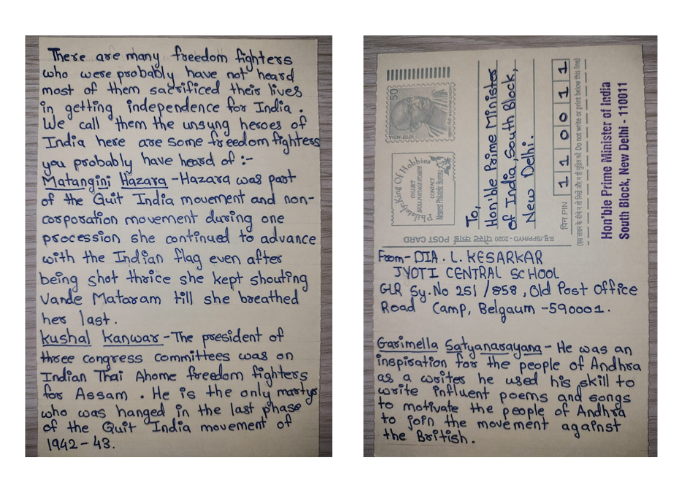 There are many freedom fighters
who were probably have not heard
most of them sacrificed their lives
in getting independence for India.
We call them the unsung heroes of
India here are some freedom fighters
you probably have heard of :-
Matangini Hazara - Hazara was part
of the Quit India movement and non-
corporation movement during one
procession she continued to advance
with the Indian flag even after
being shot thrice she kept shouting
Vande Mataram till she breathed
her last.
kushal Kanwar - The president of
three congress committees was on
Indian Thai Ahome freedom fighters
for Assam. He is the only martyr
who was hanged in the last phase
of the Quit India movement of
1942-43.
To,
Hon'ble Prime Minister
of India, South Block,
New Delhi.
पिन PIN 1 1 0 0 1 1
Hon'ble Prime Minister of India
South Block, New Delhi - 110011
POST CARD
50
From - DIA. L. KESARKAR
JYOTI CENTRAL SCHOOL
GLR Sy. No 251/858, Old Post Office
Road Camp, Belgaum - 590001.
Garimella Satyanarayana - He was an
inspiration for the people of Andhra
as a writer he used his skill to
write influent poems and songs
to motivate the people of Andhra
to join the movement against
the British.